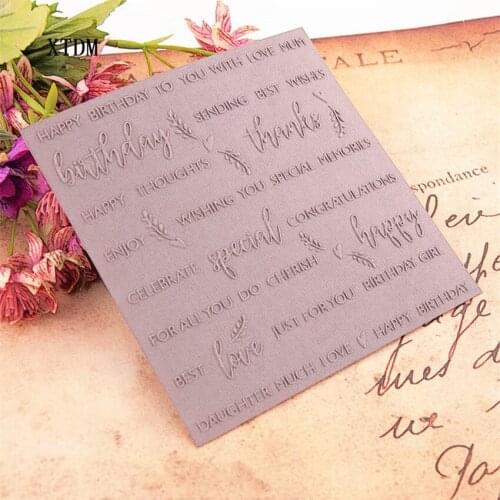 XTDM
HAPPY BIRTHDAY TO YOU WITH LOVE MUM
birthday SENDING BEST WISHES
HAPPY THOUGHTS thanks
ENJOY WISHING YOU SPECIAL MEMORIES
CELEBRATE special CONGRATULATIONS
FOR ALL YOU DO CHERISH happy
BEST love JUST FOR YOU BIRTHDAY GIRL
DAUGHTER MUCH LOVE HAPPY BIRTHDAY
TALE
spondance